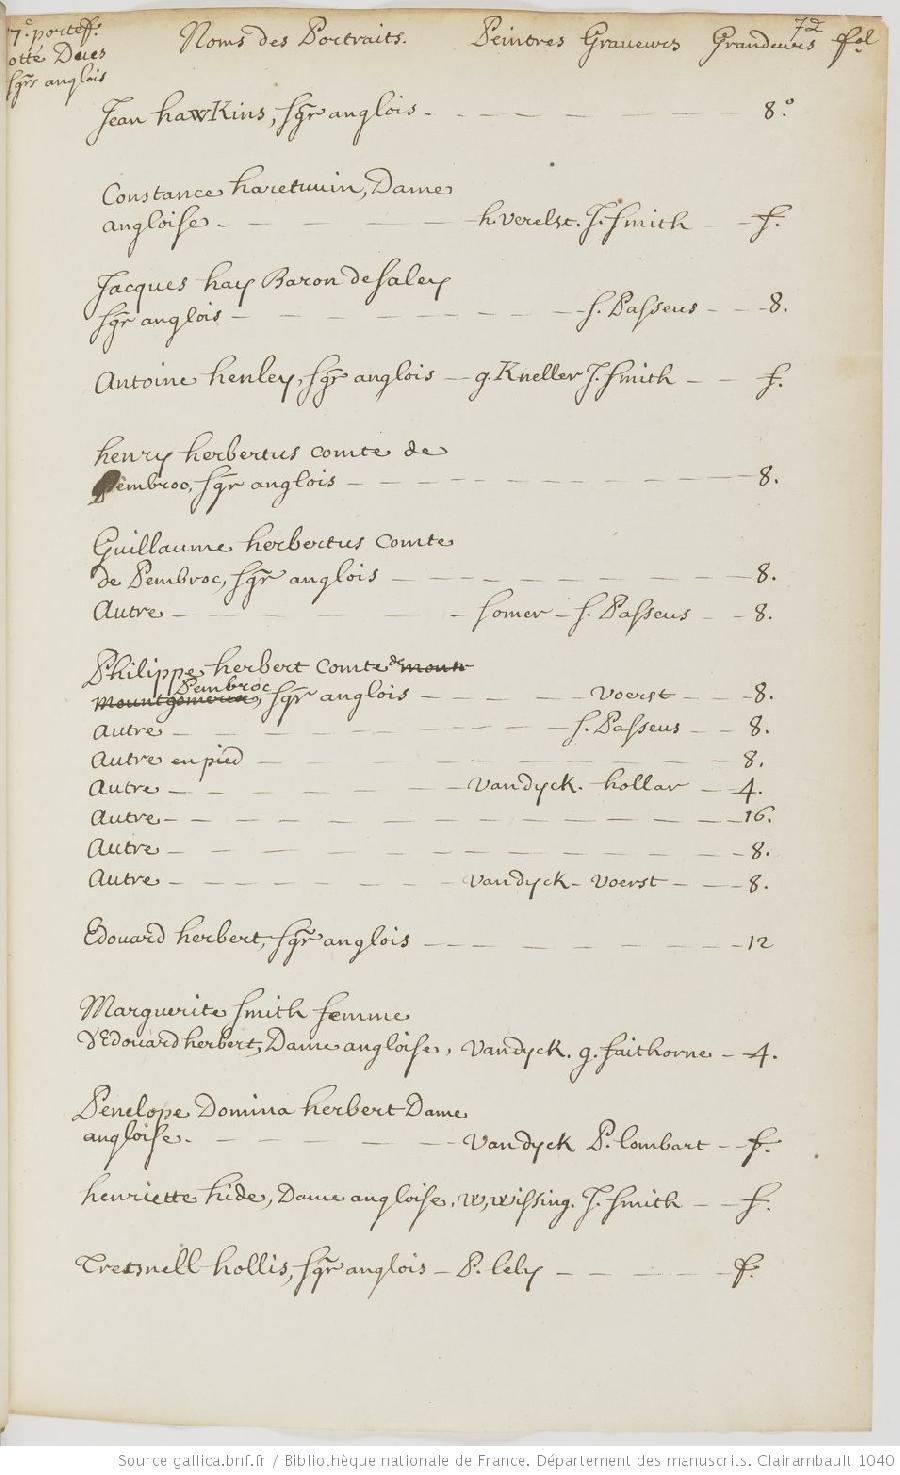 7.e portef.
Noms des Portraits. Peintres Graveurs Grandeurs fol
otté Dues
sgrs anglois
72
Jean hawKins, sgr anglois - - - - - - 8.o
Constance haretwin, Dame
angloise. - - - - h. verelst. J. Smith - - f.
Jacques hay Baron de saley
sgr anglois - - - - - - - S. Passeus - - 8.
Antoine henley, sgr anglois - g. Kneller J. Smith - - f.
henry herbertus comte de
Pembroc, sgr anglois - - - - - - - - 8.
Guillaume herbertus comte
de Pembroc, sgr anglois - - - - - - - 8.
Autre - - - - Somer - S. Passeus - - 8.
Philippe herbert comte de mount
Pembroc
mountgomerea, sgr anglois - - - - Voerst - - 8.
Autre - - - - - - - S. Passeus - - 8.
Autre en pied - - - - - - - 8.
Autre - - - - - Vandyck. hollar - 4.
Autre - - - - - - - - - 16.
Autre - - - - - - - - - 8.
Autre - - - - - Vandyck - Voerst - - 8.
Edouard herbert, sgr anglois - - - - - - 12
Marguerite Smith femme
d'Edouard herbert, Dame angloise, Vandyck. g. faithorne - 4.
Penelope Domina herbert Dame
angloise. - - - - Vandyck P. lombart - f.
henriette hide, Dame angloise, W, wissing. J. Smith - - f.
hollis, sgr anglois - P. lely - - - - f.
Source gallica.bnf.fr / Bibliothèque nationale de France. Département des manuscrits. Clairambault 1040